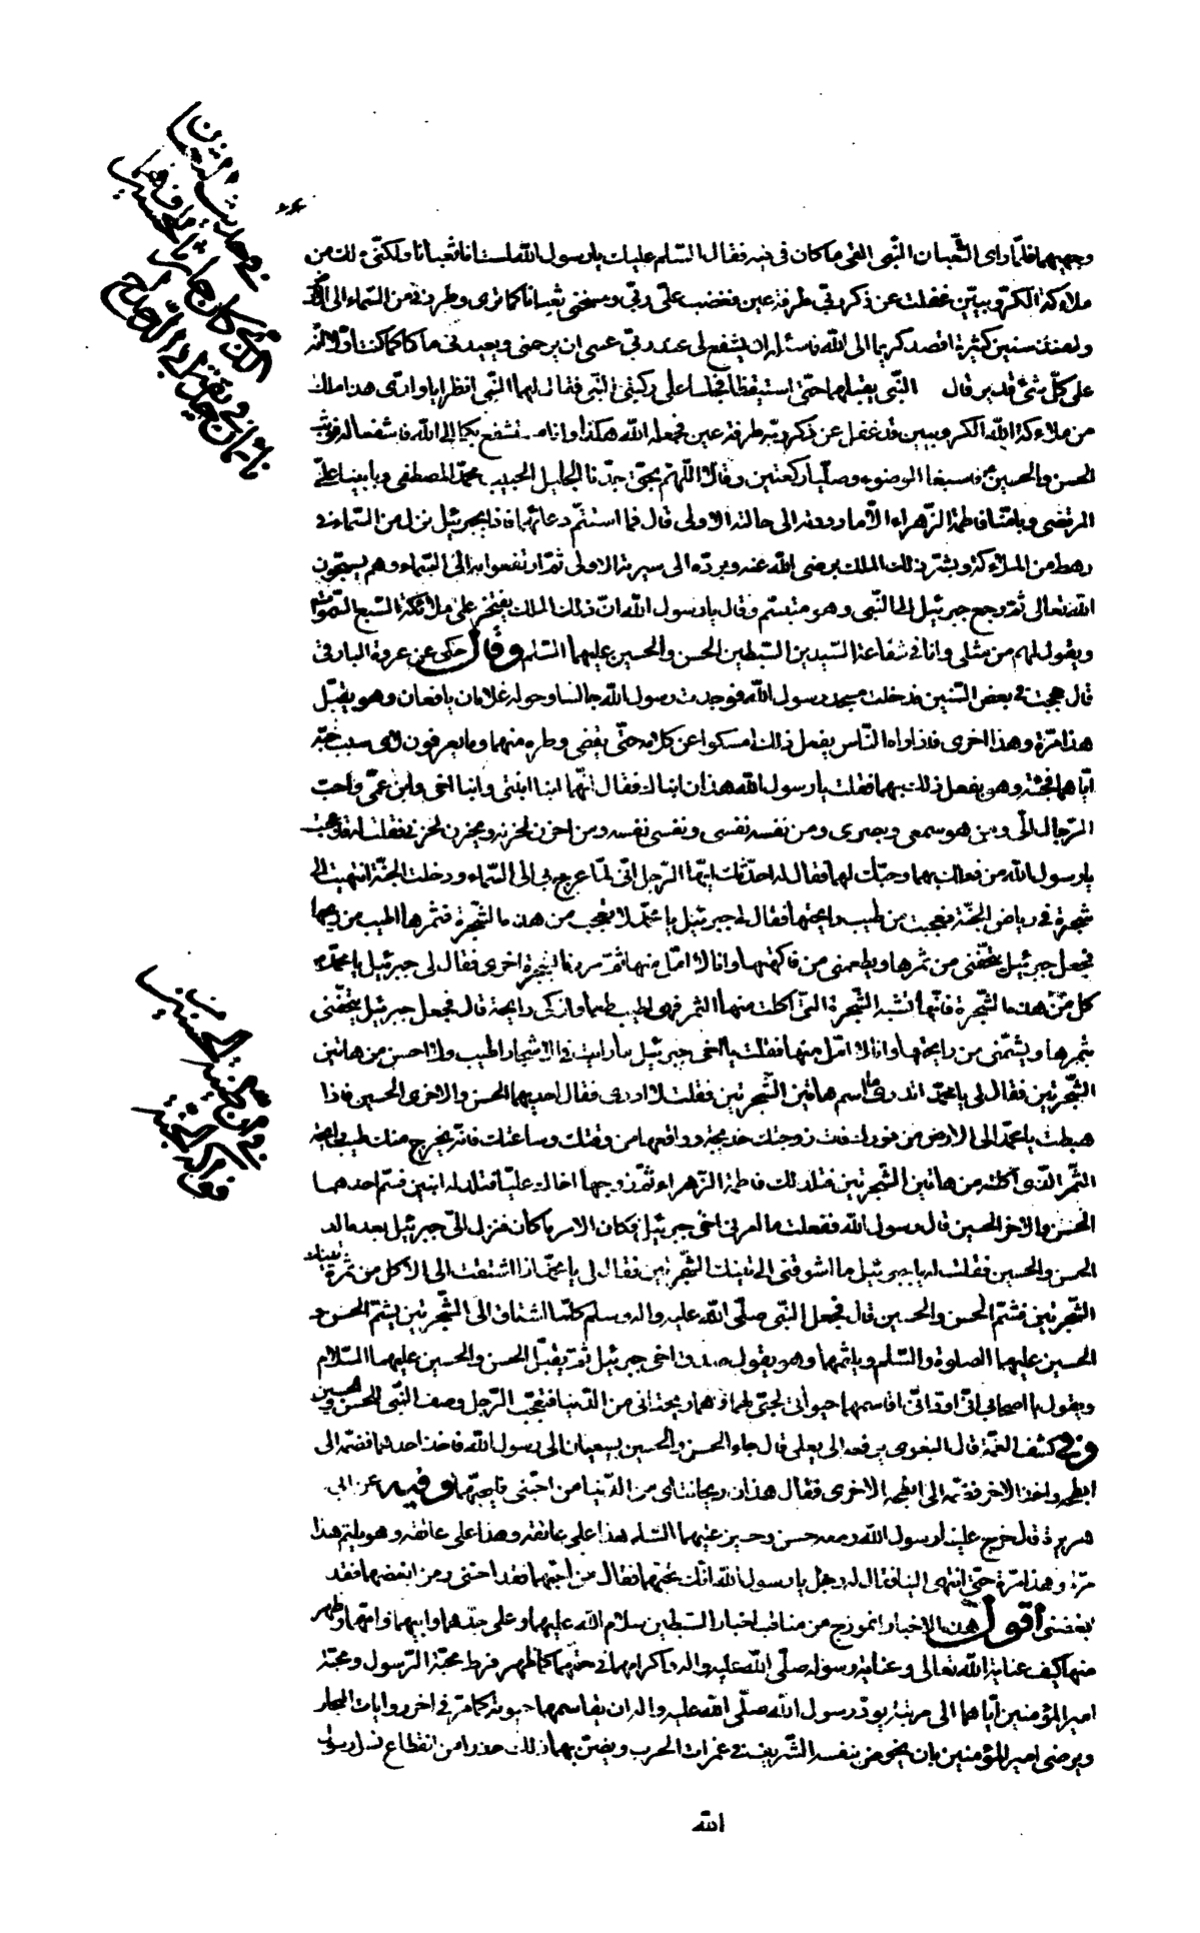 وجهيهما فلمّا رأى الثّعبان النّبى القى ما كان فى فيه فقال السّلم عليك يا رسول الله لست انا ثعبانا ولكنّى ملك من
ملائكة الكرّوبيّين غفلت عن ذكر ربّى طرفة عين فغضب علىّ ربّى ومسخنى ثعبانا كما ترى وطردنى من السّماء الى الارض
ولى منذ سنين كثيرة اقصد كريما الى الله فاسئله ان يشفع لى عند ربّى عسى ان يرحمنى ويعيدنى ملكا كما كنت اوّلا انّه
على كلّ شئ قدير قال النّبى يقبلهما حتّى استيقظا فجلسا على ركبتى النّبى فقال لهما النّبى انظرا يا ولدى هذا ملك
من ملائكة الله الكروبيين قد غفل عن ذكر ربّه طرفة عين فجعله الله هكذا وانا مستشفع بكما الى الله فاشفعا له فوثب
الحسن والحسين فاسبغا الوضوء وصلّيا ركعتين وقالا اللّهم بحقّ جدّنا الجليل الحبيب محمّد المصطفى وبابينا علىّ
المرتضى وبامّنا فاطمة الزّهراء الّا ما رددته الى حالته الاولى قال فما استتمّ دعائهما فاذا بجبرئيل نزل من السّماء فى
رهط من الملائكة وبشّر ذلك الملك برضى الله عنه وبردّه الى سيرته الاولى ثمّ ارتفعوا به الى السّماء وهم يسبّحون
الله تعالى ثمّ رجع جبرئيل الى النّبى وهو متبسّم وقال يا رسول الله انّ ذلك الملك يفتخر على ملائكة السّبع السّموات
ويقول لهم من مثلى وانا فى شفاعة السّيدين السّبطين الحسن والحسين عليهما السّلم وقال حكى عن عروة البارقى
قال حججت فى بعض السّنين فدخلت مسجد رسول الله فوجدت رسول الله جالسا وحوله غلامان يافعان وهو يقبّل
هذا مرّة وهذا اخرى فاذا راه النّاس يفعل ذلك امسكوا عن كلامه حتّى يقضى وطره منهما وما يعرفون لاى سبب حبّه
ايّاهما فجئته وهو يفعل ذلك بهما فقلت يا رسول الله هذان ابناك فقال انّهما ابنا ابنتى وابنا اخى وابن عمّى واحبّ
الرّجال الىّ ومن هو سمعى وبصرى ومن نفسه نفسى ونفسى نفسه ومن احزن لحزنه ويحزن لحزنى فقلت له قد عجبت
يا رسول الله من فعلك بهما وحبّك لهما فقال له احدّثك ايّها الرّجل انّى لمّا عرج بى الى السّماء ودخلت الجنّة انتهيت الى
شجرة فى رياض الجنّة فعجبت من طيب رايحتها فقال لى جبرئيل يا محمّد لا تعجب من هذه الشّجرة فثمرها اطيب من ريحها
فجعل جبرئيل يتحفنى من ثمرها ويطعمنى من فاكهتها وانا لا املّ منها ثمّ مررنا بشجرة اخرى فقال لى جبرئيل يا محمّد
كل من هذه الشّجرة فانّها تشبه الشّجرة الّتى اكلت منها الثمر فهى اطيب طعما وازكى رايحة قال فجعل جبرئيل يتحفنى
بثمرها ويشمّنى من رايحتها وانا لا املّ منها فقلت يا اخى جبرئيل ما رايت فى الاشجار اطيب ولا احسن من هاتين
الشّجرتين فقال لى يا محمّد اتدرى ما اسم هاتين الشّجرتين فقلت لا ادرى فقال احديهما الحسن والاخرى الحسين فاذا
هبطت يا محمّد الى الارض من فورك فات زوجتك خديجة وواقعها من وقتك وساعتك فانّه يخرج منك طيب رايحة
الثّمر الّذى اكلته من هاتين الشّجرتين فتلد لك فاطمة الزّهراء ثمّ زوّجها اخاك عليّا فتلد له ابنين فسمّ احدهما
الحسن والاخر الحسين قال رسول الله ففعلت ما امرنى اخى جبرئيل فكان الامر ما كان فنزل الىّ جبرئيل بعد ما ولد
الحسن والحسين فقلت له يا جبرئيل ما اشوقنى الى تينك الشّجرتين فقال لى يا محمّد اذا اشتقت الى الاكل من ثمرة تينك
الشّجرتين فشمّ الحسن والحسين قال فجعل النّبى صلّى الله عليه واله وسلم كلّما اشتاق الى الشّجرتين يشمّ الحسن و
الحسين عليهما الصلوة والسّلم ويلثمهما وهو يقول صدق اخى جبرئيل ثمّ يقبّل الحسن والحسين عليهما السّلام
ويقول يا اصحابى انّى اودّ انّى اقاسمهما حيوتى لحبّى لهما فهما ريحانتاى من الدّنيا فتعجّب الرّجل وصف النّبى للحسن والحسين
وفى كشف الغمّة قال البغوى يرفعه الى يعلى قال جاء الحسن والحسين يسعيان الى رسول الله فاخذ احدهما فضمّه الى
ابطه واخذ الاخر فضمّه الى ابطه الاخرى فقال هذان ريحانتاى من الدّنيا من احبّنى فليحبّهما وفيه عن ابى
هريرة قال خرج علينا رسول الله ومعه حسن وحسين عليهما السلم هذا على عاتقه وهذا على عاتقه وهو يلثم هذا
مرّة وهذا مرّة حتّى انتهى الينا فقال له رجل يا رسول الله انّك تحبّهما فقال من احبّهما فقد احبّنى ومن ابغضهما فقد
ابغضنى اقول هذه الاخبار انموذج من مناقب اخبار السّبطين سلام الله عليهما وعلى جدّهما وابيهما وامّهما وظهر
منها كيف عناية الله تعالى وعناية رسوله صلّى الله عليه واله واكرامهما فى حقّهما كما ظهر فرط محبّة الرّسول ومحبّة
امير المؤمنين ايّاهما الى مرتبة يودّ رسول الله صلّى الله عليه واله ان يقاسمهما حيوته كما مرّ فى اخر روايات البحار
ويرضى امير المؤمنين بان يخوض بنفسه الشّريف فى غمرات الحرب ويضنّ بهما ذلك حذرا من انقطاع نسل رسول
الله